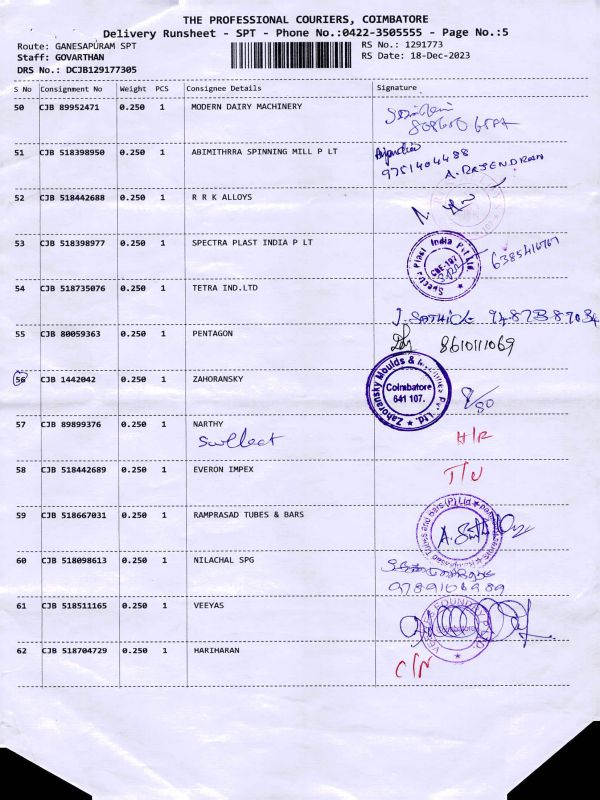 THE PROFESSIONAL COURIERS, COIMBATORE
Delivery Runsheet - SPT - Phone No.:0422-3505555 - Page No.:5
Route: GANESAPURAM SPT RS No.: 1291773
Staff: GOVARTHAN RS Date: 18-Dec-2023
DRS No.: DCJB129177305
S No Consignment No Weight PCS Consignee Details Signature
50 CJB 89952471 0.250 1 MODERN DAIRY MACHINERY
51 CJB 518398950 0.250 1 ABIMITHRRA SPINNING MILL P LT
9751404488
A. RAJENDRAN
52 CJB 518442688 0.250 1 R R K ALLOYS
53 CJB 518398977 0.250 1 SPECTRA PLAST INDIA P LT
Spectra Plast India Pvt Ltd.
CBE-107
54 CJB 518735076 0.250 1 TETRA IND.LTD
55 CJB 80059363 0.250 1 PENTAGON 8610111069
56 CJB 1442042 0.250 1 ZAHORANSKY
Zahoransky Moulds & Machines Pvt. Ltd.
Coimbatore
641 107.
57 CJB 89899376 0.250 1 NARTHY H/R
58 CJB 518442689 0.250 1 EVERON IMPEX
59 CJB 518667031 0.250 1 RAMPRASAD TUBES & BARS
Ramprasad Tubes and Bars (P) Ltd
60 CJB 518098613 0.250 1 NILACHAL SPG
61 CJB 518511165 0.250 1 VEEYAS
Coimbatore
62 CJB 518704729 0.250 1 HARIHARAN
C/N